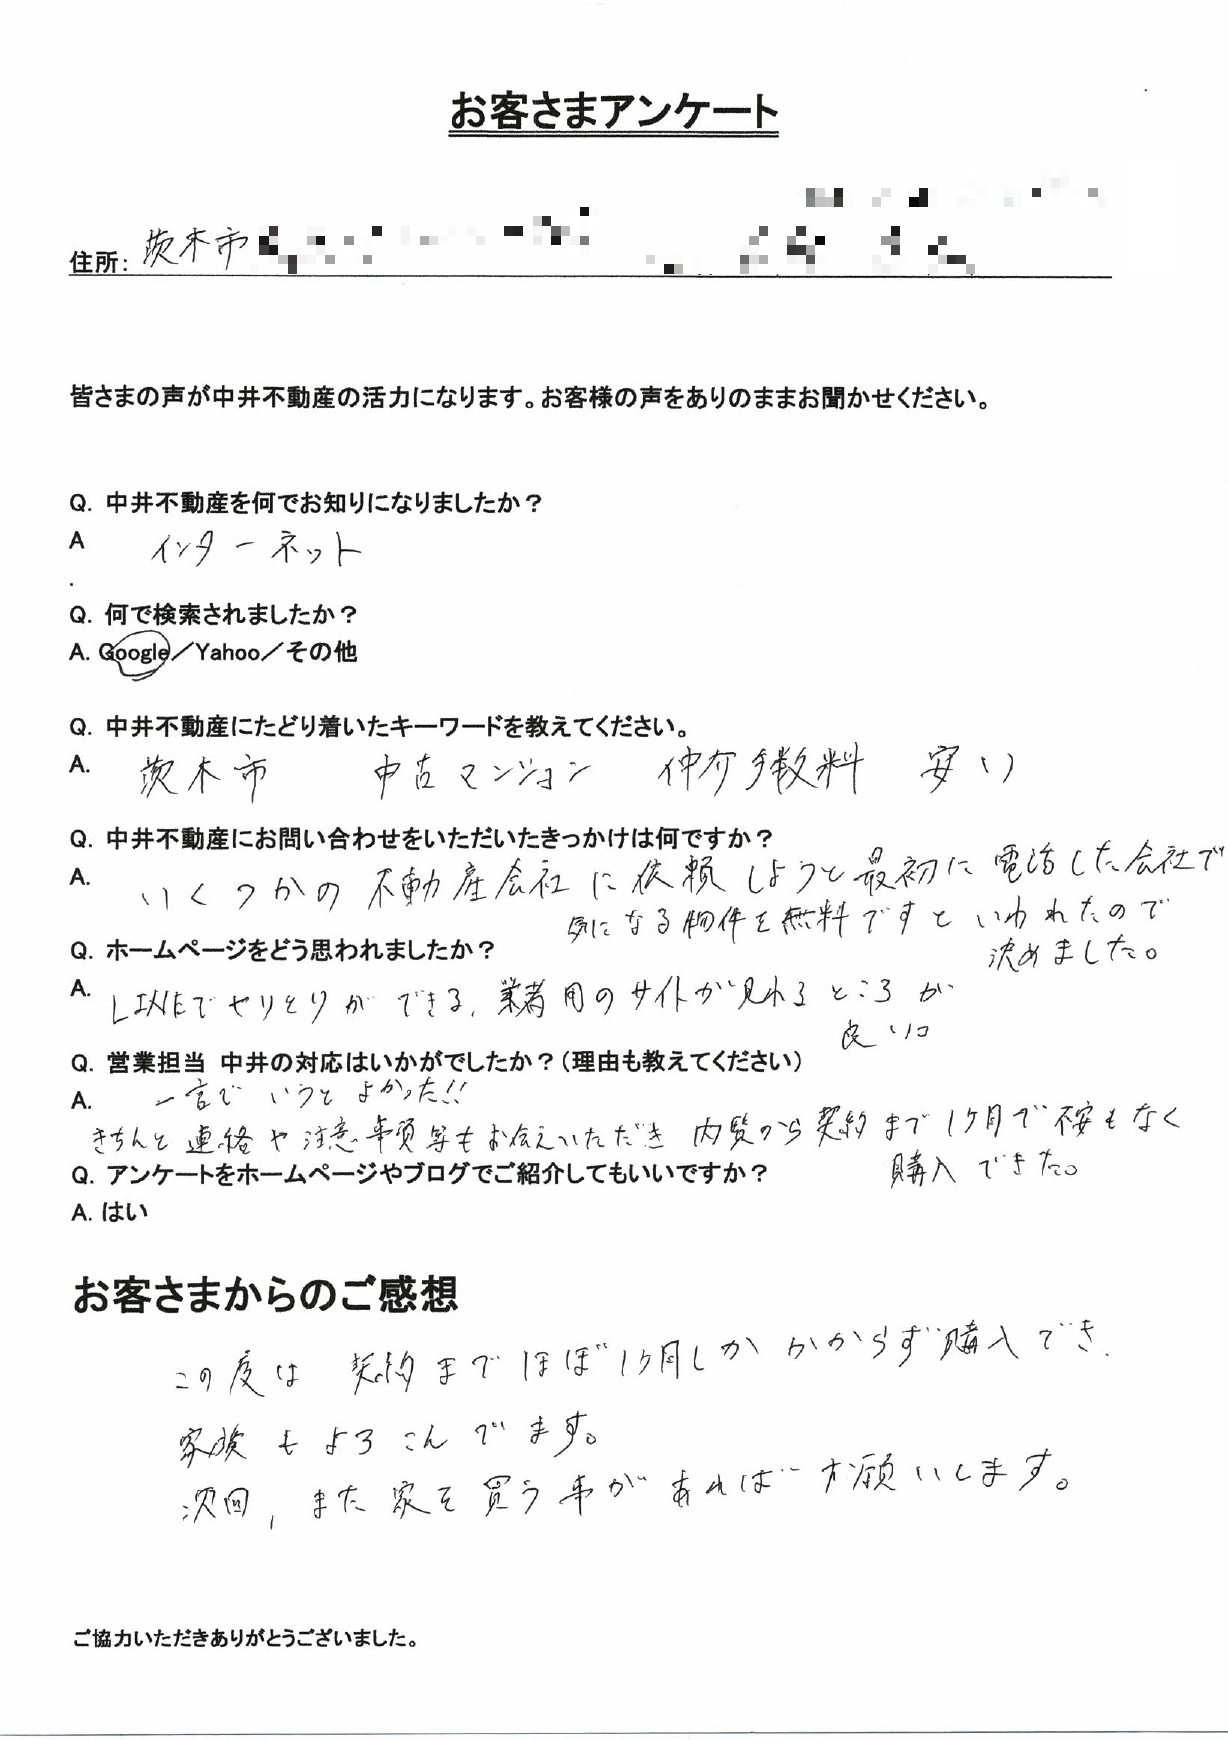 お客さまアンケート
住所: 茨木市
皆さまの声が中井不動産の活力になります。お客様の声をありのままお聞かせください。
Q. 中井不動産を何でお知りになりましたか？
A インターネット
.
Q. 何で検索されましたか？
A. Google／Yahoo／その他
Q. 中井不動産にたどり着いたキーワードを教えてください。
A. 茨木市 中古マンション 仲介手数料 安い
Q. 中井不動産にお問い合わせをいただいたきっかけは何ですか？
A. いくつかの不動産会社に依頼しようと最初に電話した会社で
気になる物件を無料ですといわれたので
決めました。
Q. ホームページをどう思われましたか？
A. LINEでやりとりができる、業者用のサイトが見れるところが
良い。
Q. 営業担当 中井の対応はいかがでしたか？（理由も教えてください）
A. 一言でいうとよかった!!
きちんと連絡や注意事項等もお伝えいただき 内覧から契約まで1ヶ月で不安もなく
購入できた。
Q. アンケートをホームページやブログでご紹介してもいいですか？
A. はい
お客さまからのご感想
この度は 契約までほぼ1ヶ月しかかからず購入でき、
家族もよろこんでます。
次回、また家を買う事があればお願いします。
ご協力いただきありがとうございました。